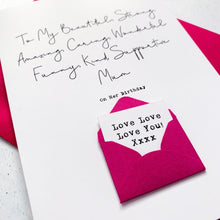 To My Beautiful, Strong
Amazing, Caring, Wonderful
Funny, Kind, Supportive
Mum
On Her Birthday
Love Love
Love You!
Xxxx